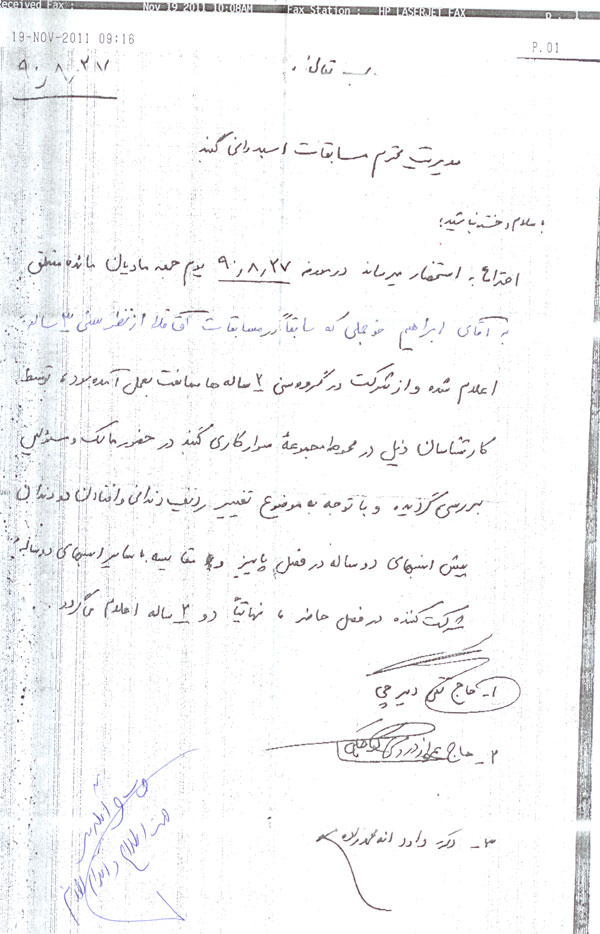 Received Fax : Nov 19 2011 10:08AM Fax Station : HP LASERJET FAX p . 1
19-NOV-2011 09:16 P.01
۹۰٫۸٫۲۷
بسمه تعالی
مدیریت محترم مسابقات اسبدوانی گنبد
با سلام و خسته نباشید؛
احتراماً به استحضار میرساند در مورخه ۹۰٫۸٫۲۷ یوم جمعه مادیان مائده متعلق
به آقای ابراهیم خوجملی که سابقاً در مسابقات آق قلا از نظر سنی ۳ ساله
اعلام شده و از شرکت در گروه سنی ۲ ساله ها ممانعت بعمل آمده بود، توسط
کارشناسان ذیل در محوطه مجموعهٔ سوارکاری گنبد در حضور مالک و مسئولین
بررسی گردیده و با توجه به موضوع تغییر ردیف دندانی و افتادن دو دندان
پیش اسبهای دو ساله در فصل پاییز و مقایسه با سایر اسبهای دو سالهٔ
شرکت کننده در فصل حاضر، نهایتاً دو ۲ ساله اعلام می‌گردد.
۱- حاج تقی دمیرچی
۲- حاج
۳- دکتر داود
جهت اطلاع و اقدام لازم